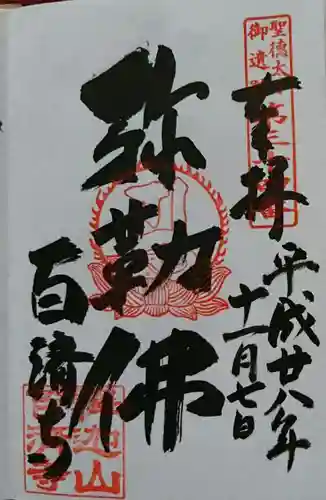 奉拝
平成廿八年
十一月七日
弥勒佛
百済寺
聖徳太
御遺
釈迦山
百済寺